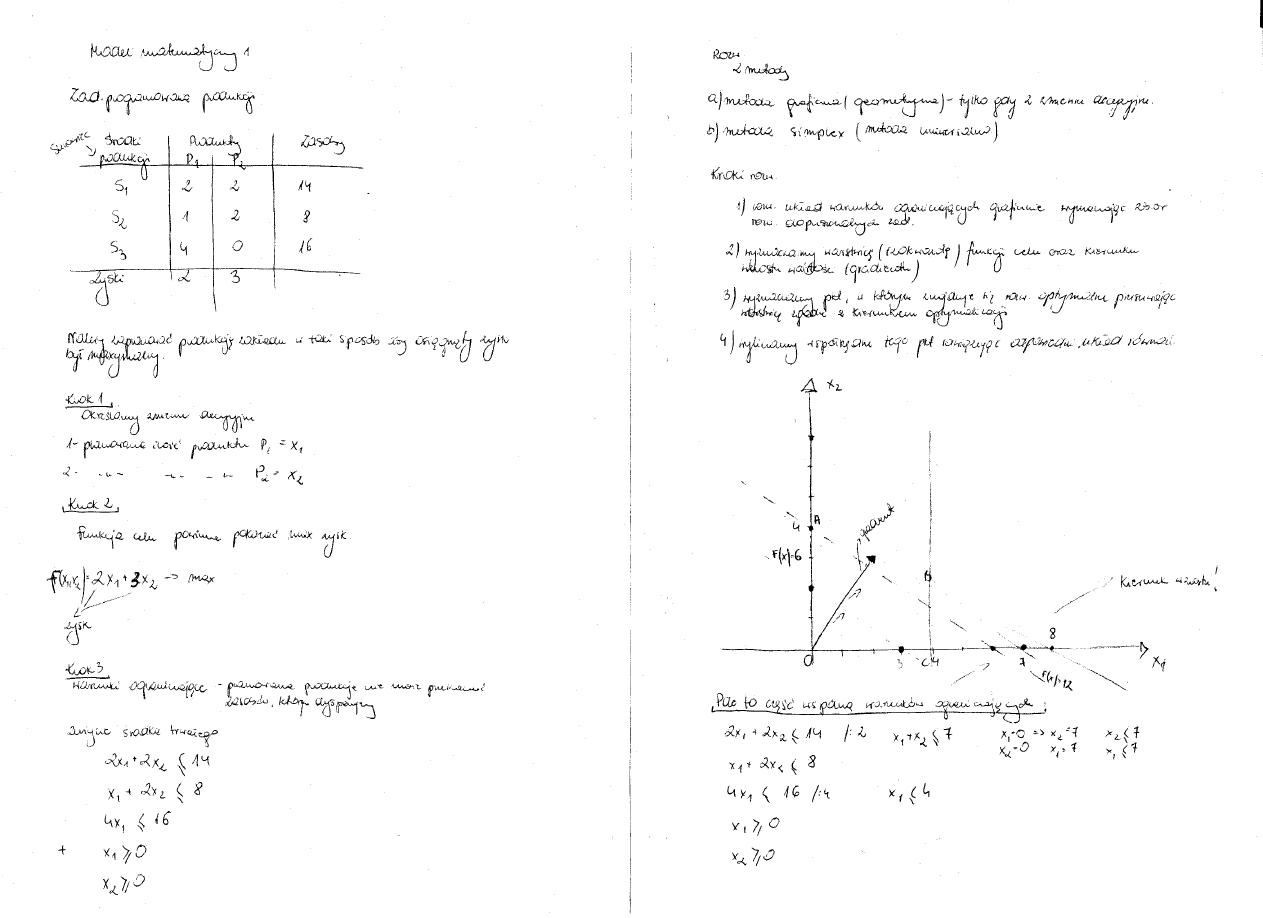 Model matematyczny 1
Zad. programowania produkcji
Środki produkcji
Produkty
Zasoby
P1 P2
S1 2 2 14
S2 1 2 8
S3 4 0 16
Zyski 2 3
Należy zaplanować produkcję zakładu w taki sposób aby osiągnięty zysk
był maksymalny.
Krok 1
Określamy zmienne decyzyjne
1- planowana ilość produktu P1 = x1
2- -"- -"- -"- P2 = x2
Krok 2
Funkcja celu powinna pokazać max zysk
f(x1,x2)=2x1+3x2 -> max
zysk
Krok 3
warunki ograniczające - planowana produkcja nie może przekraczać
zasobów, którymi dysponujemy
zużycie środka trwałego
2x1+2x2 ≤ 14
x1 + 2x2 ≤ 8
4x1 ≤ 16
+ x1 ≥ 0
x2 ≥ 0
Rozw.
2 metody
a) metoda graficzna (geometryczna) - tylko gdy 2 zmienne decyzyjne.
b) metoda simplex (metoda uniwersalna)
Kroki rozw.
1) rozw. układ warunków ograniczających graficznie wyznaczając zbiór
rozw. dopuszczalnych zad.
2) wyznaczamy warstwicę (izokwantę) funkcji celu oraz kierunku
wzrostu wartości (gradientu)
3) wyznaczamy pkt, w którym znajduje się rozw. optymalne przesuwając
warstwicę zgodnie z kierunkiem optymalizacji
4) wyliczamy współrzędne tego pkt rozwiązując odpowiedni układ równań.
x2
4 A
gradient
F(x)=6
B
Kierunek wzrostu!
8
0 3 C 4 7 x1
F(x)=12
Pole to część wspólna warunków ograniczających:
2x1 + 2x2 ≤ 14 /:2 x1+x2 ≤ 7 x1=0 => x2=7 x2 ≤ 7
x2=0 x1=7 x1 ≤ 7
x1 + 2x2 ≤ 8
4x1 ≤ 16 /:4 x1 ≤ 4
x1 ≥ 0
x2 ≥ 0